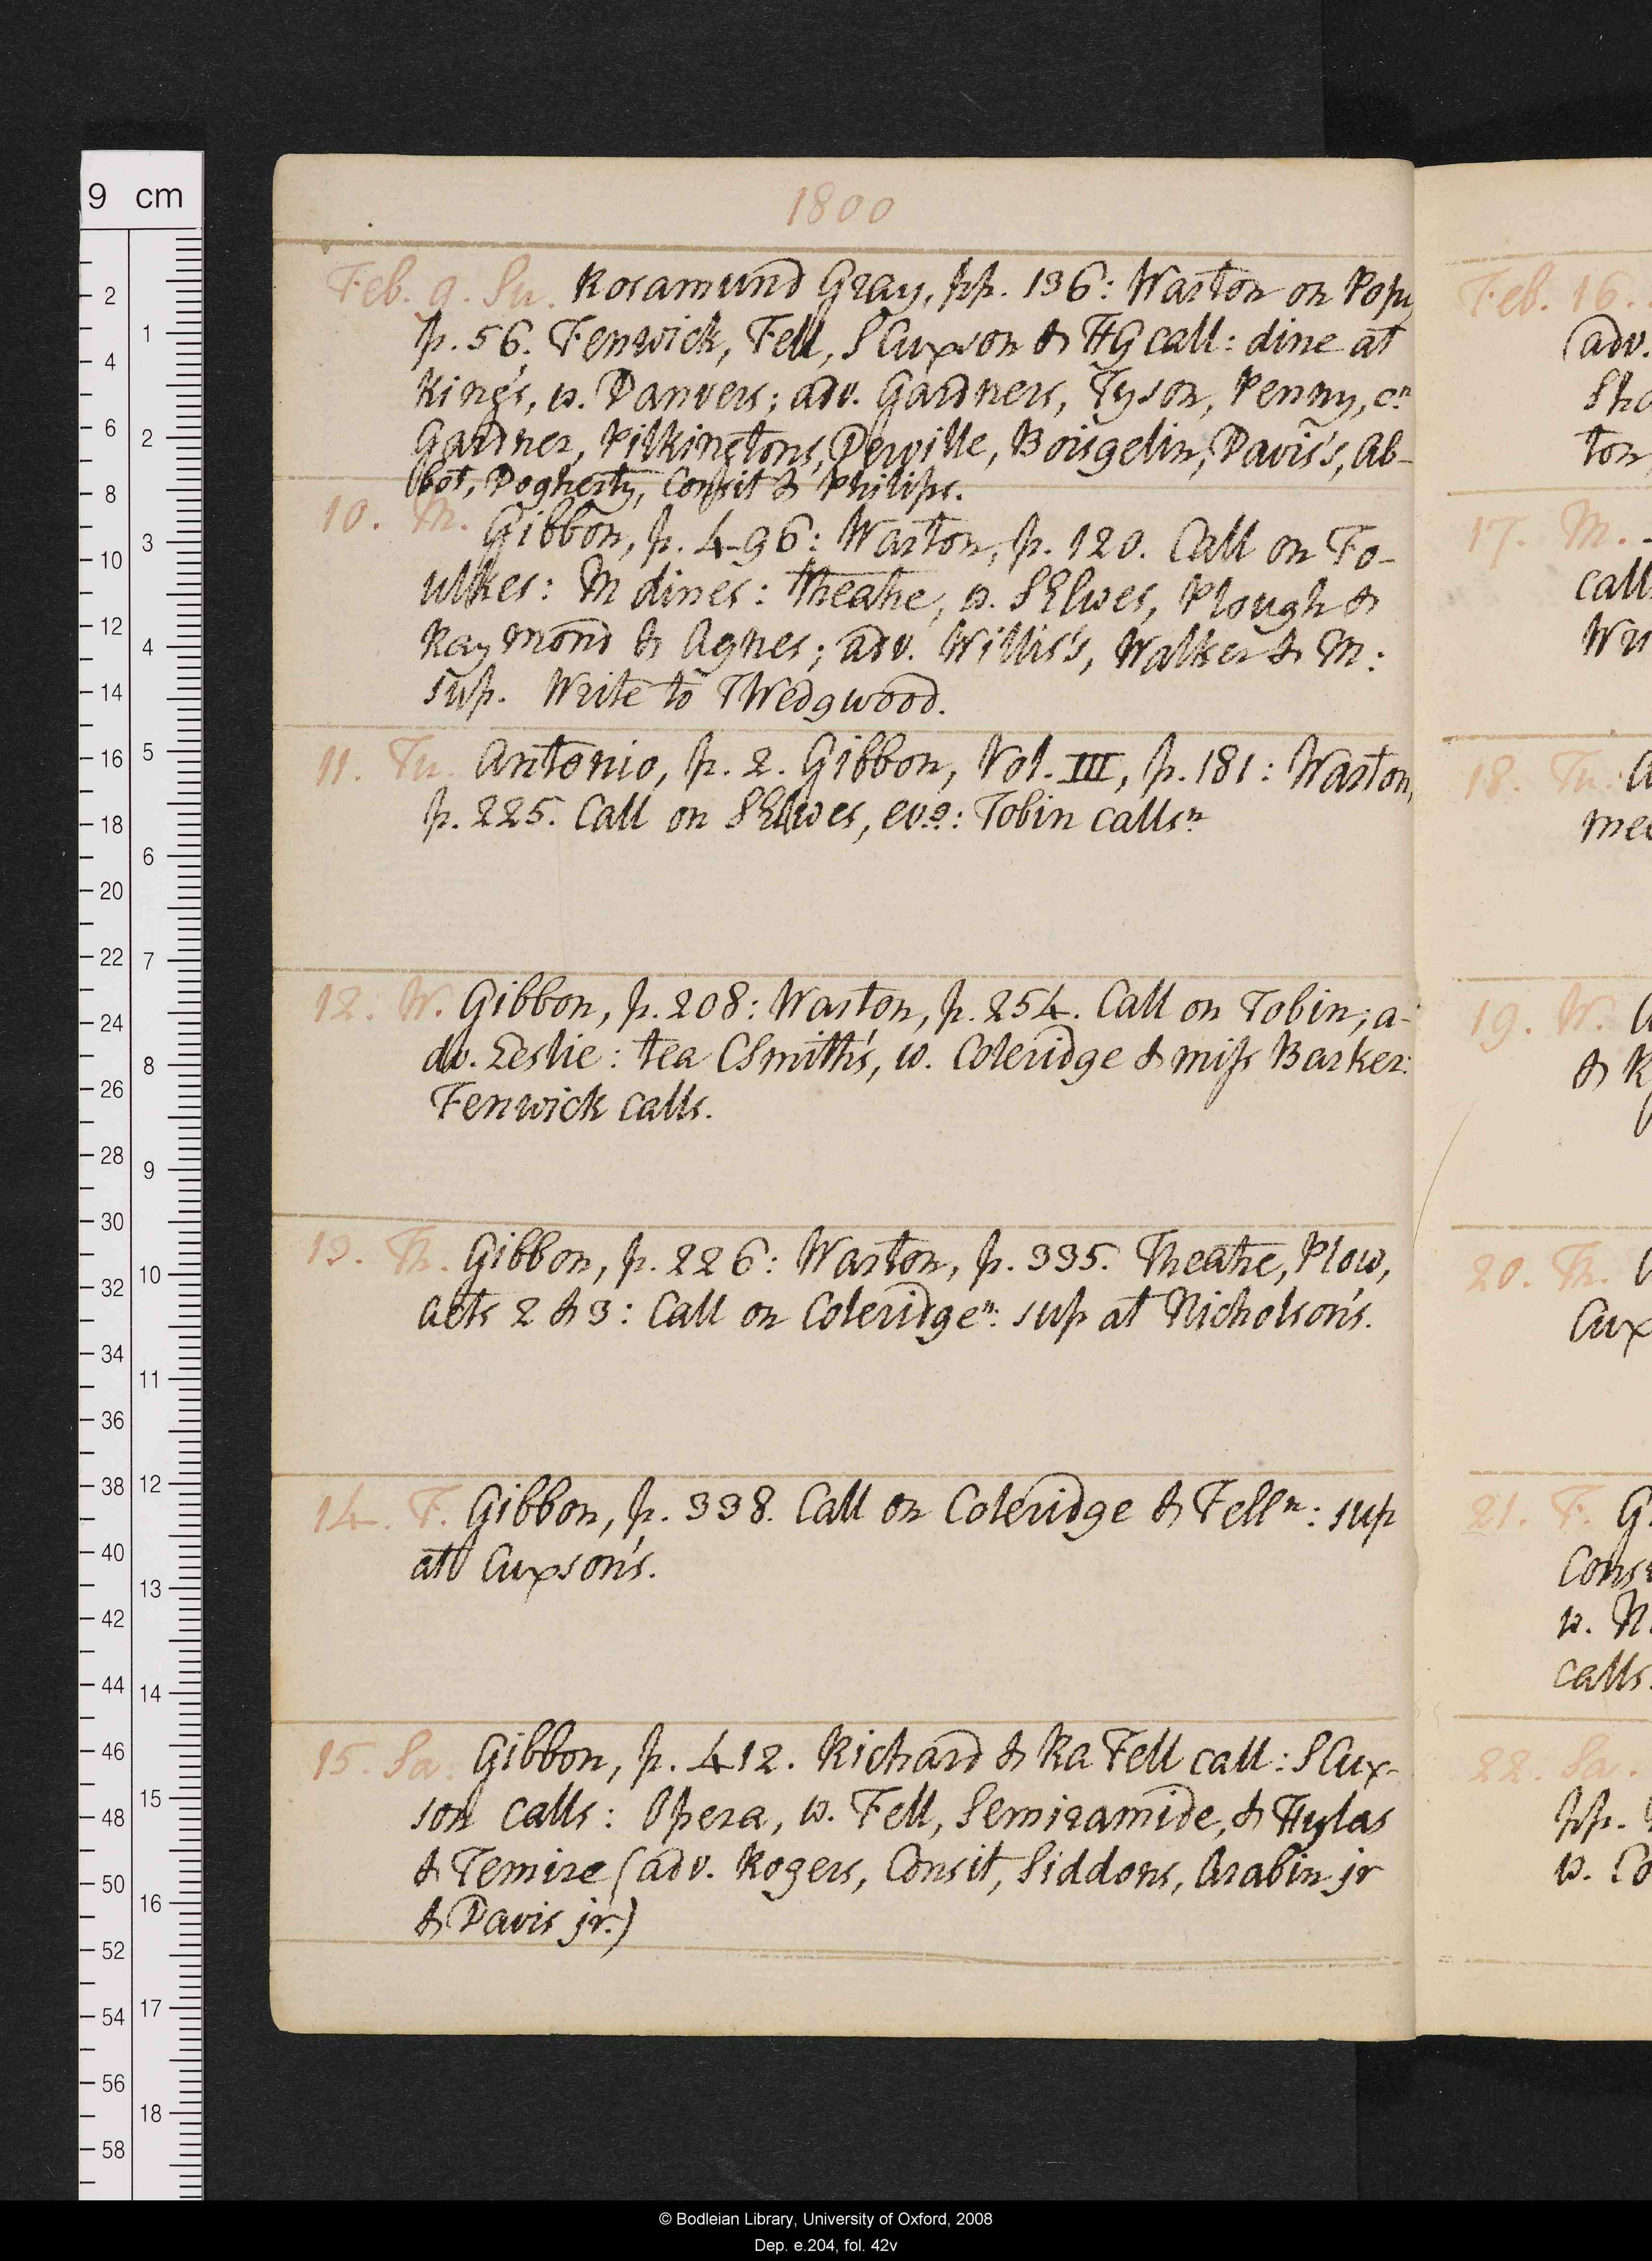 9 cm
1800
Feb. 9. Su. Rosamund Gray, pp. 136: Warton on Pope
p. 56. Fenwick, Fell, SCuxson & HG call: dine at
King's, w. Danvers; adv. Gardners, Tyson, Penny, cn
Gardner, Pilkingtons, Derville, Boisgelin, Davis's, Ab-
bot, Dogherty, Consit & Philips.
10. M. Gibbon, p. 496: Warton, p. 120. Call on Fo-
ulkes: M dines: theatre, w. SElwes, Plough &
Raymond & Agnes; adv. Willis's, Walker & M:
sup. Write to TWedgwood.
11. Tu. Antonio, p. 2. Gibbon, Vol. III, p. 181: Warton,
p. 225. Call on SElwes, evg: Tobin callsn
12. W. Gibbon, p. 208: Warton, p. 254. Call on Tobin; a-
dv. Leslie: tea CSmith's, w. Coleridge & miss Barker:
Fenwick calls.
13. Th. Gibbon, p. 226: Warton, p. 335. Theatre, Plow,
acts 2 & 3: Call on Coleridgen: sup at Nicholson's.
14. F. Gibbon, p. 338. Call on Coleridge & Felln: sup
at Cuxson's.
15. Sa. Gibbon, p. 412. Richard & Ra Fell call: SCux-
son calls: Opera, w. Fell, Semiramide, & Hylas
& Temire (adv. Rogers, Consit, Siddons, Arabin jr
& Davis jr.)
Feb. 16.
(adv.
ton
17. M.
call
18. Tu.
19. W.
20. Th.
Cux
21. F. G
Cons
w. N
calls.
22. Sa.
pp.
w. Co
© Bodleian Library, University of Oxford, 2008
Dep. e.204, fol. 42v